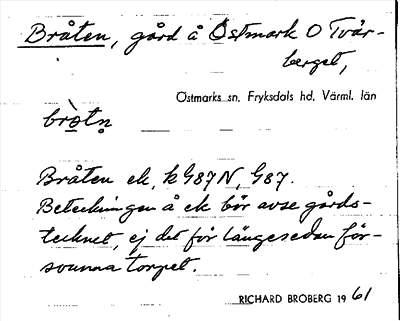 Bråten, gård å Östmark O Tvär-
berget,
Östmarks sn, Fryksdals hd, Värml. län
bròtn̥
Bråten ek, k G87N, G87.
Beteckningen å ek bör avse gårds-
tecknet, ej det för längesedan för-
svunna torpet.
RICHARD BROBERG 1961